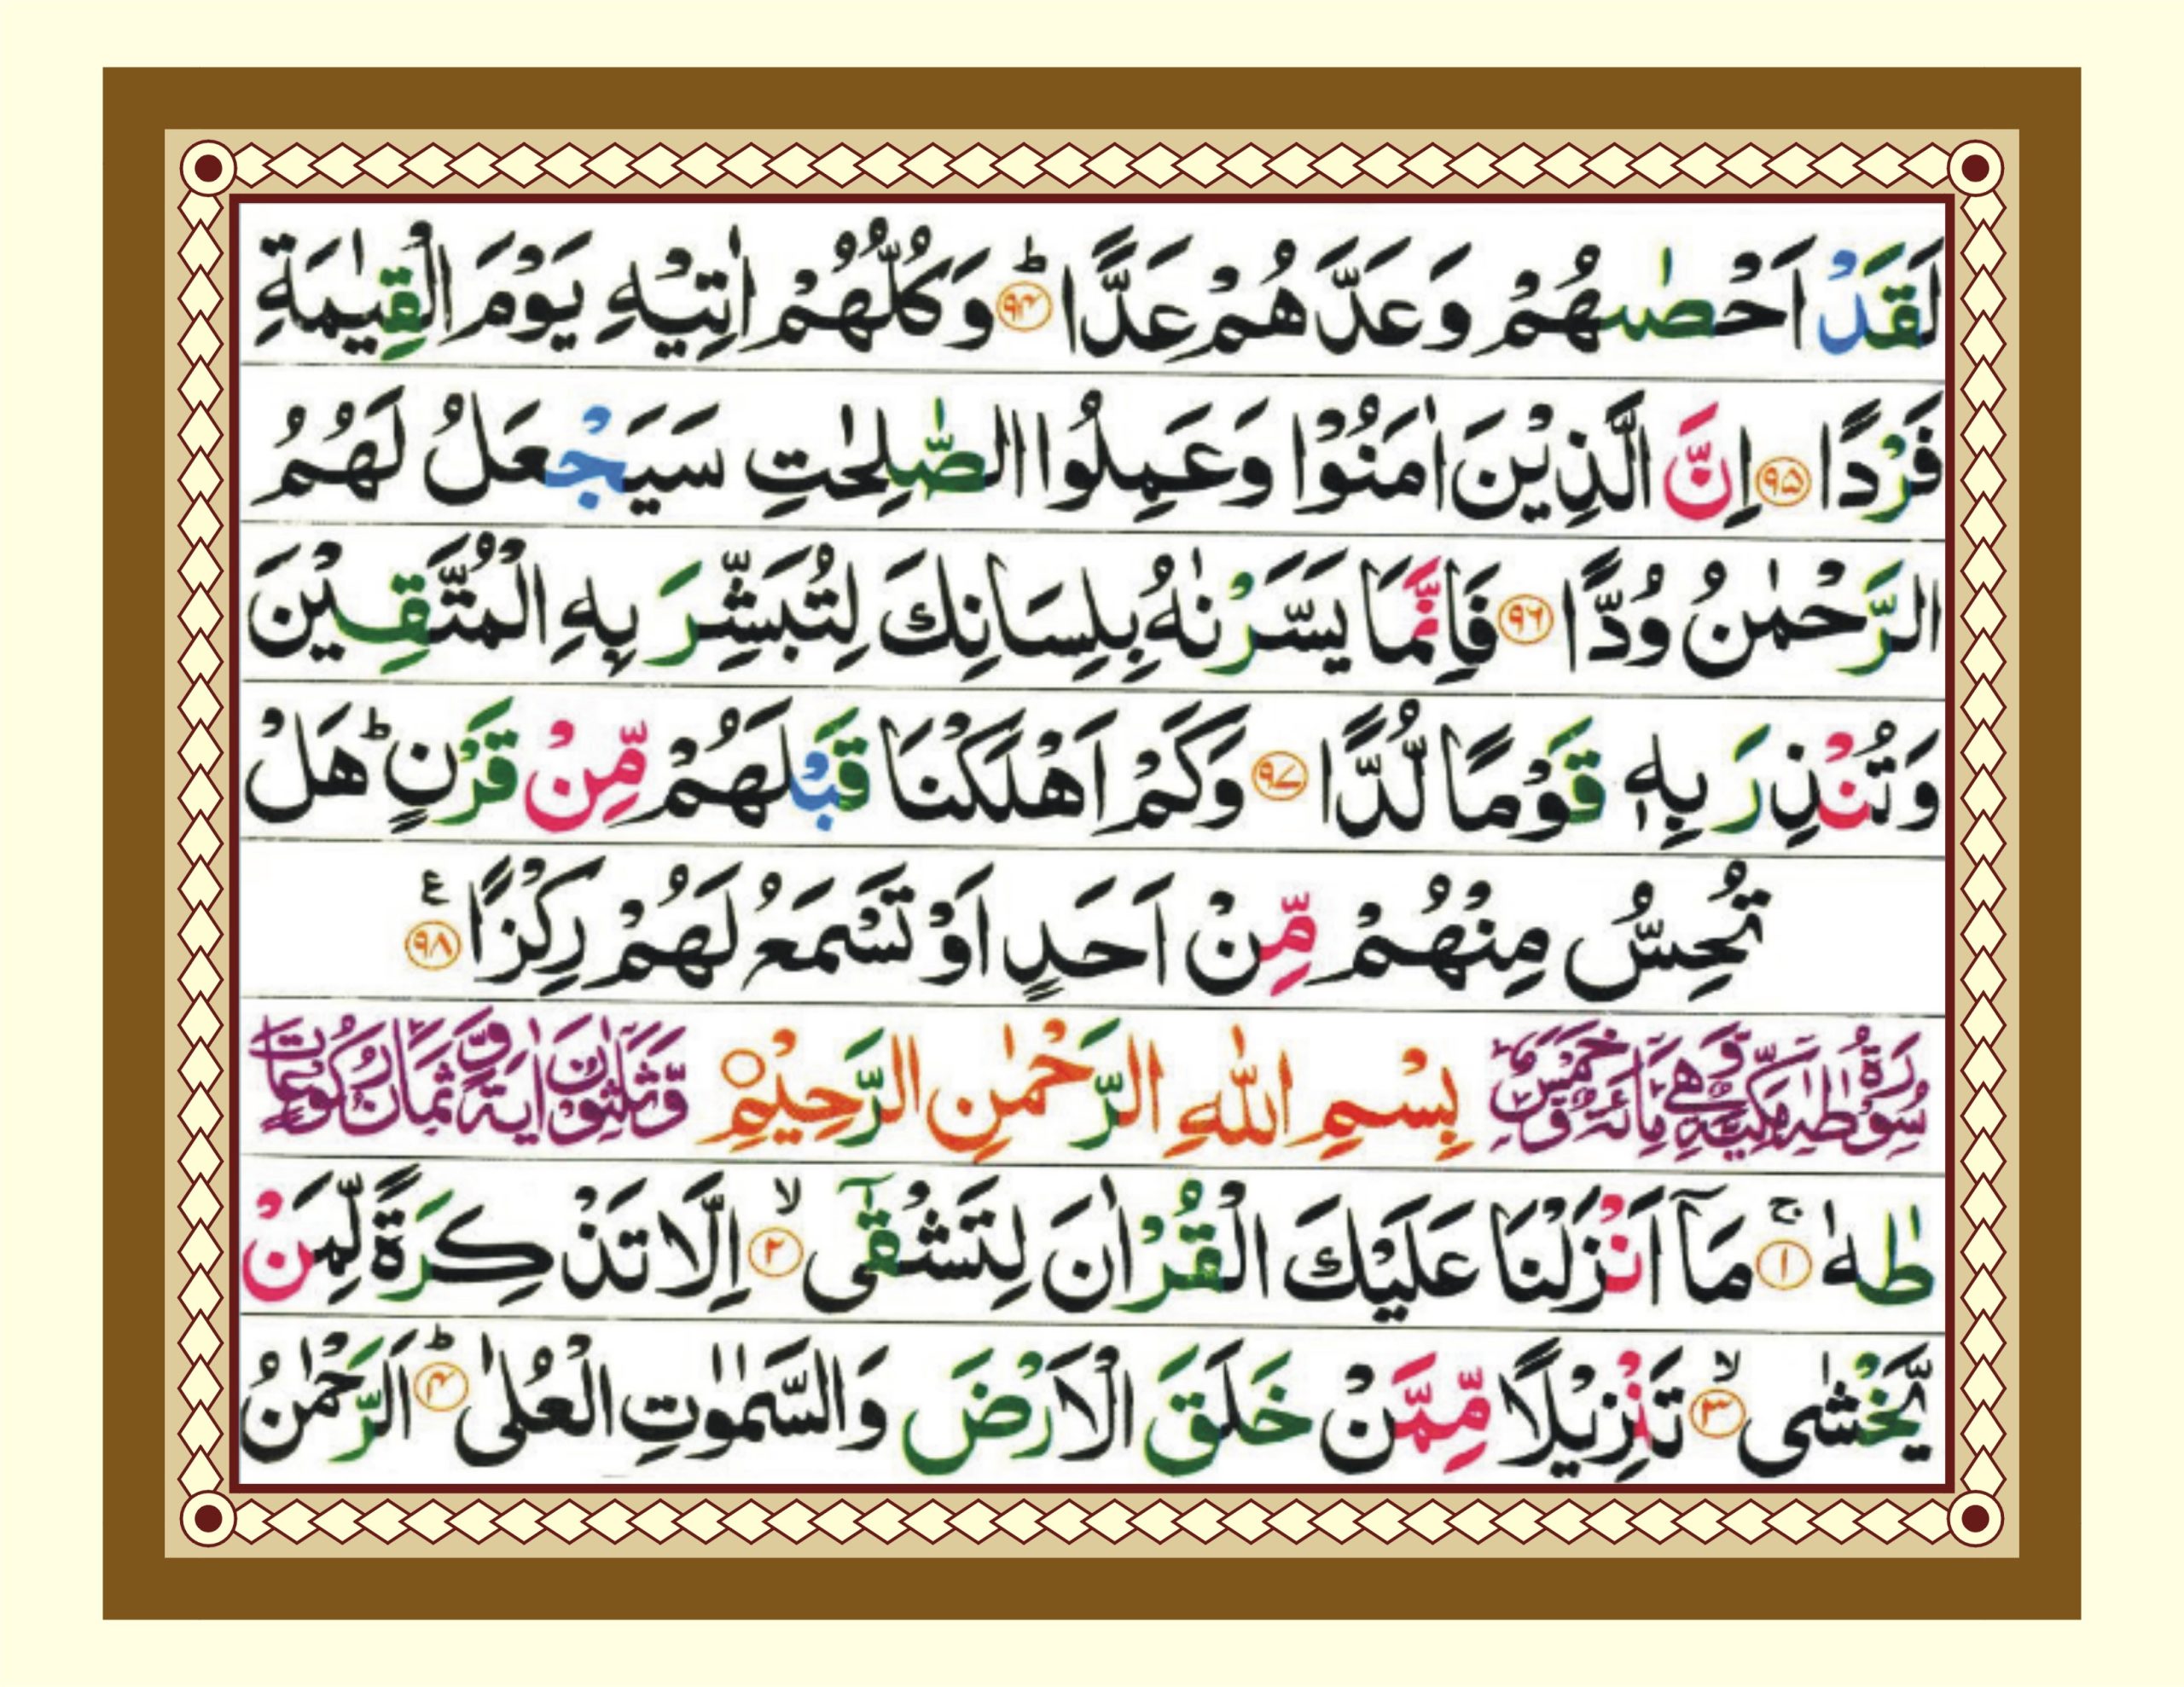 لَقَدْ اَحْصٰىهُمْ وَعَدَّهُمْ عَدًّا ؕ۝۹۴ وَكُلُّهُمْ اٰتِيْهِ يَوْمَ الْقِيٰمَةِ
فَرْدًا ۝۹۵ اِنَّ الَّذِيْنَ اٰمَنُوْا وَعَمِلُوا الصّٰلِحٰتِ سَيَجْعَلُ لَهُمُ
الرَّحْمٰنُ وُدًّا ۝۹۶ فَاِنَّمَا يَسَّرْنٰهُ بِلِسَانِكَ لِتُبَشِّرَ بِهِ الْمُتَّقِيْنَ
وَتُنْذِرَ بِهٖ قَوْمًا لُّدًّا ۝۹۷ وَكَمْ اَهْلَكْنَا قَبْلَهُمْ مِّنْ قَرْنٍ ؕ هَلْ
تُحِسُّ مِنْهُمْ مِّنْ اَحَدٍ اَوْ تَسْمَعُ لَهُمْ رِكْزًا ۝۹۸ ع
سُوْرَةُ طٰهٰ مَكِّيَّةٌ وَّهِيَ مِائَةٌ وَّخَمْسٌ بِسْمِ اللّٰهِ الرَّحْمٰنِ الرَّحِيْمِ وَّثَلٰثُوْنَ اٰيَةً وَّثَمَانُ رُكُوْعَاتٍ
طٰهٰ ۚ۝۱ مَاۤ اَنْزَلْنَا عَلَيْكَ الْقُرْاٰنَ لِتَشْقٰۤى ۙ۝۲ اِلَّا تَذْكِرَةً لِّمَنْ
يَّخْشٰى ۙ۝۳ تَنْزِيْلًا مِّمَّنْ خَلَقَ الْاَرْضَ وَالسَّمٰوٰتِ الْعُلٰى ؕ۝۴ اَلرَّحْمٰنُ